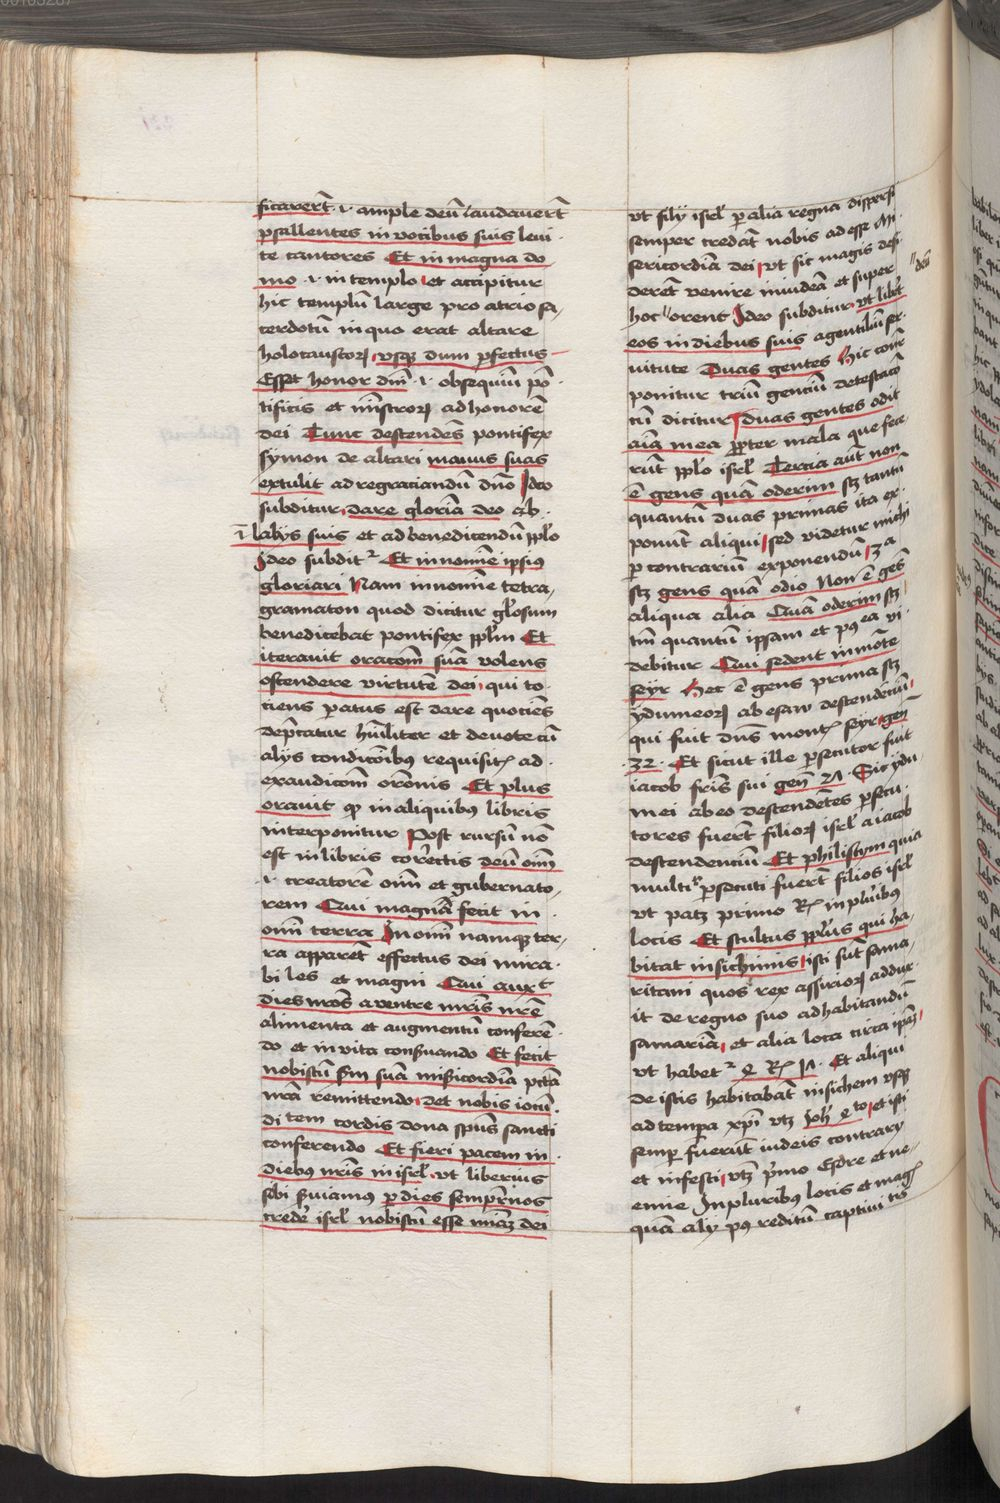 ficarerēt .i. ample deū laudaverēt
psallentes in vocibus suis levi
te cantores Et in magna do
mo .i. in templo et accipitur
hic templū large pro atrio sa
cerdotū in quo erat altare
holocaustoꝝ usqꝫ dum pfectus
Esset honor dn̄i .i. obsequiū pō
tificis et mīstroꝝ ad honorē
dei Tunc descendēs pontifex
symon de altari manus suas
extulit ad regraciandū dn̄o Ideo
subditur dare gloriā deo ab
ī labys suis et ad benedicendū pplo
Ideo subditr Et in nomīe ipsius
gloriari Nam in nomīe tetra
gramaton quod dicitur gl'osum
benedicebat pontifex pplm̄ Et
iteravit oracōm suā volens
ostendere virtutē dei qui to
ciens paratus est dare quociēs
dep̄catur hūiliter et devote cū
alys condicōibus requisitꝭ ad
exaudicōm orōnis Et plus
oravit qꝫ in aliquibus libris
interponitur Post rursū nō
est in libris correctis deū oīm
.i. creatorē oīm et gubernato
rem Qui magnā fecit in
omī terra In omī namqꝫ ter
ra apparēt effectus dei mira
biles et magni Qui auxt
dies nr̄os a ventre mr̄is nr̄e
alimenta et augmentū conferē
do et in vita conservando Et fecit
nobiscū scdm suā misericordiā pctā
nr̄a remittendo det nobis iocū
ditem cordis dona spūs sancti
conferendo Et fieri pacem in
diebus nr̄is in isrl' ut liberius
sibi serviamus p dies sempernos
credere isrl' nobiscū esse miāꝫ dei
ut filij isrl' p alia regna dispersi
semper credāt nobis adesse mi
sericordiā dei ut sic magis desi
derēt venire in iudeā et super
hoc orent Ideo subditur ut liberet
deū
eos in diebus suis a gentiliū ser
vitute Duas gentes Hic con
ponitur triū genciū detestacō
cū dicitur duas gentes odit
aīa mea propter mala que fece
rūt pplo isrl' Tercia aūt non
ē gens quā oderim scꝫ tantū
quantū duas primas ita ex
ponūt aliqui sed videtur michi
p contrarium exponendū 3a
scꝫ gens quā odio Non ē gēs
aliqua alia Quā oderim scꝫ
tm̄ quantū ipsam et pꝰ ea vi
debitur Qui sedent in mōte
seyr Hec ē gens prima scꝫ
ydumeoꝝ ab esaw descendenciū
qui fuit dn̄s montꝭ seyr gen̄
32 Et sicut ille psecutor fuit
iacob fr̄is sui gen̄ 27 Sic ydu
mei ab eo descendētes psecu
tores fuerūt filioꝝ isrl' a iacob
descendenciū Et philistym quia
multū psecuti fuerūt filios isrl'
ut patꝫ primo Rꝭ in pluribus
locis Et stultus ppl'us qui ha
bitat in sichimis isti sūt sama
ritani quos rex assirioꝝ addux
it de regno suo ad habitandū
samariā et alia loca circa ipāꝫ
ut habetr 4 Rꝭ 17 Et aliqui
de istis habitabāt in sichem usqꝫ
ad tempora xp̄i utꝫ Joh' 4to et isti
semper fuerūt iudeis contrary
et infesti utꝫ primo Esdre et ne
emie In pluribus locis et mag
quā aly pꝰ reditū captivi